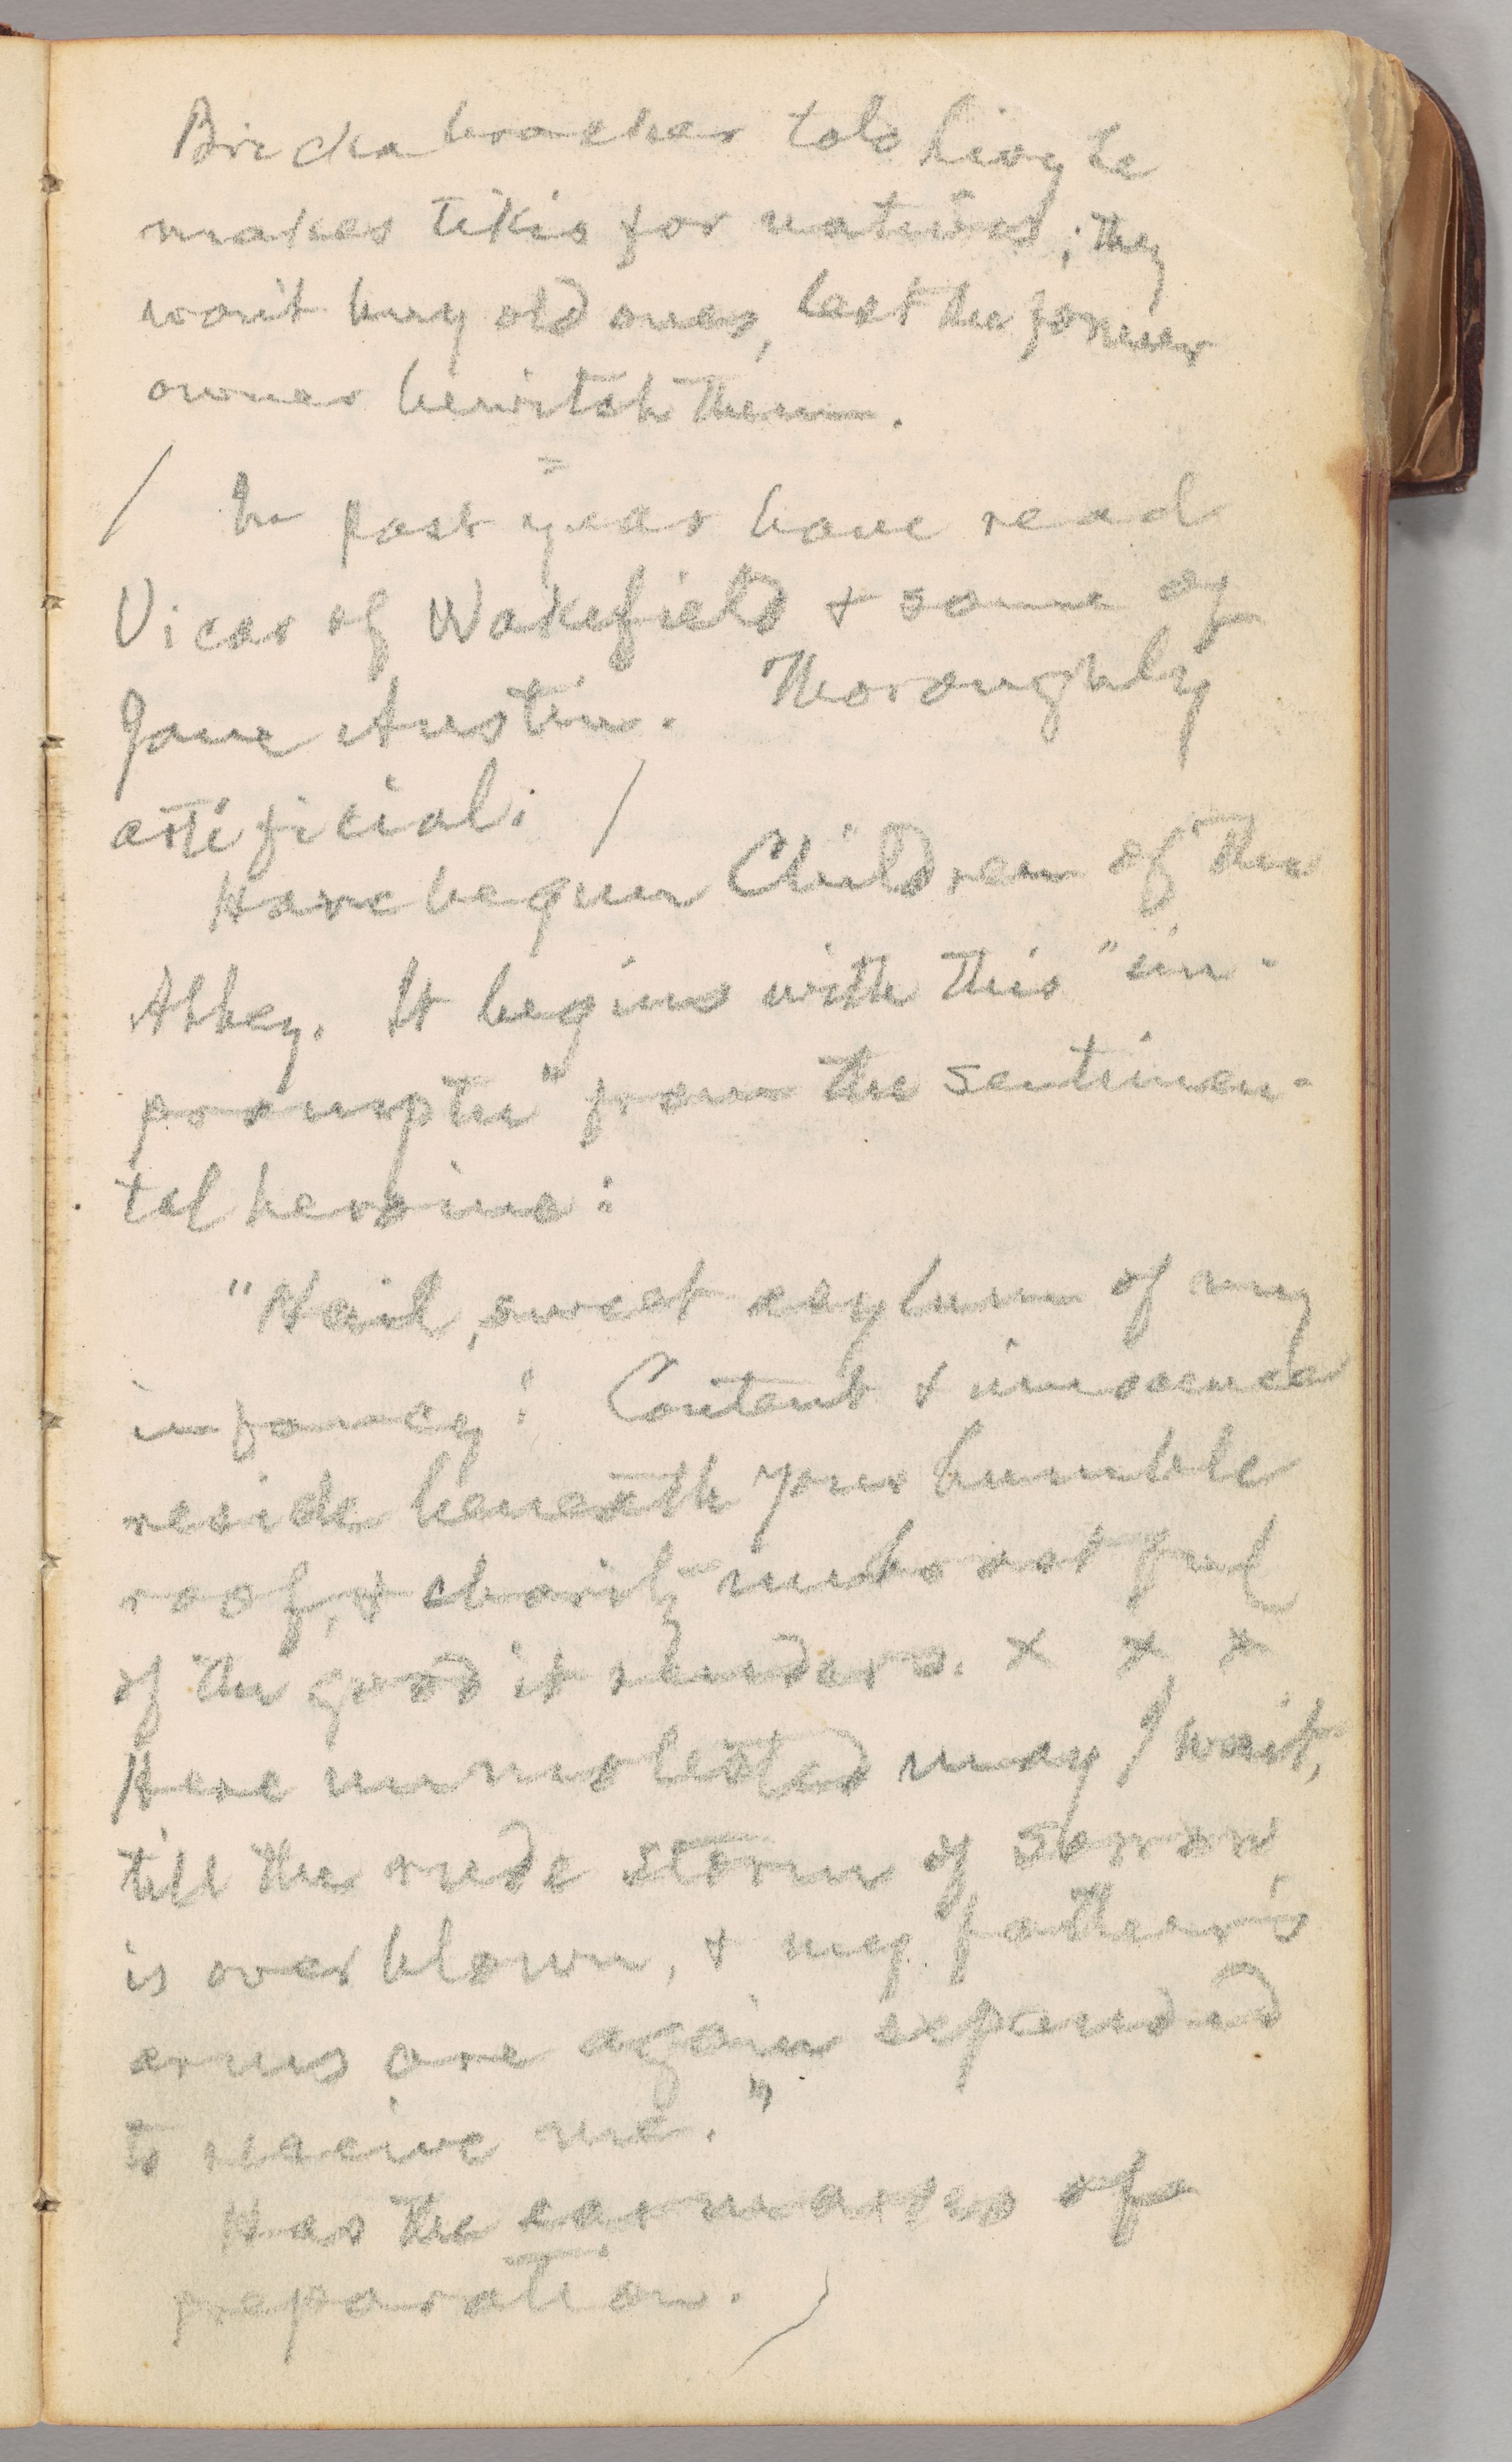 Bricabracker told Livy he
makes tikis for natives; they
won't buy old ones, lest the former
owner bewitch them.
/ In past year have read
Vicar of Wakefield & some of
Jane Austin. Thoroughly
artificial. /
Have begun Children of the
Abbey. It begins with this "im-
promptu" from the sentimen-
tal heroine:
"Hail, sweet asylum of my
infancy! Content & innocence
reside beneath your humble
roof, & charity unboastful
of the good it renders. x x x
Here unmolested may I wait,
till the rude storm of sorrow
is overblown, & my father's
arms are again expanded
to receive me."
Has the ear-marks of
preparation. /